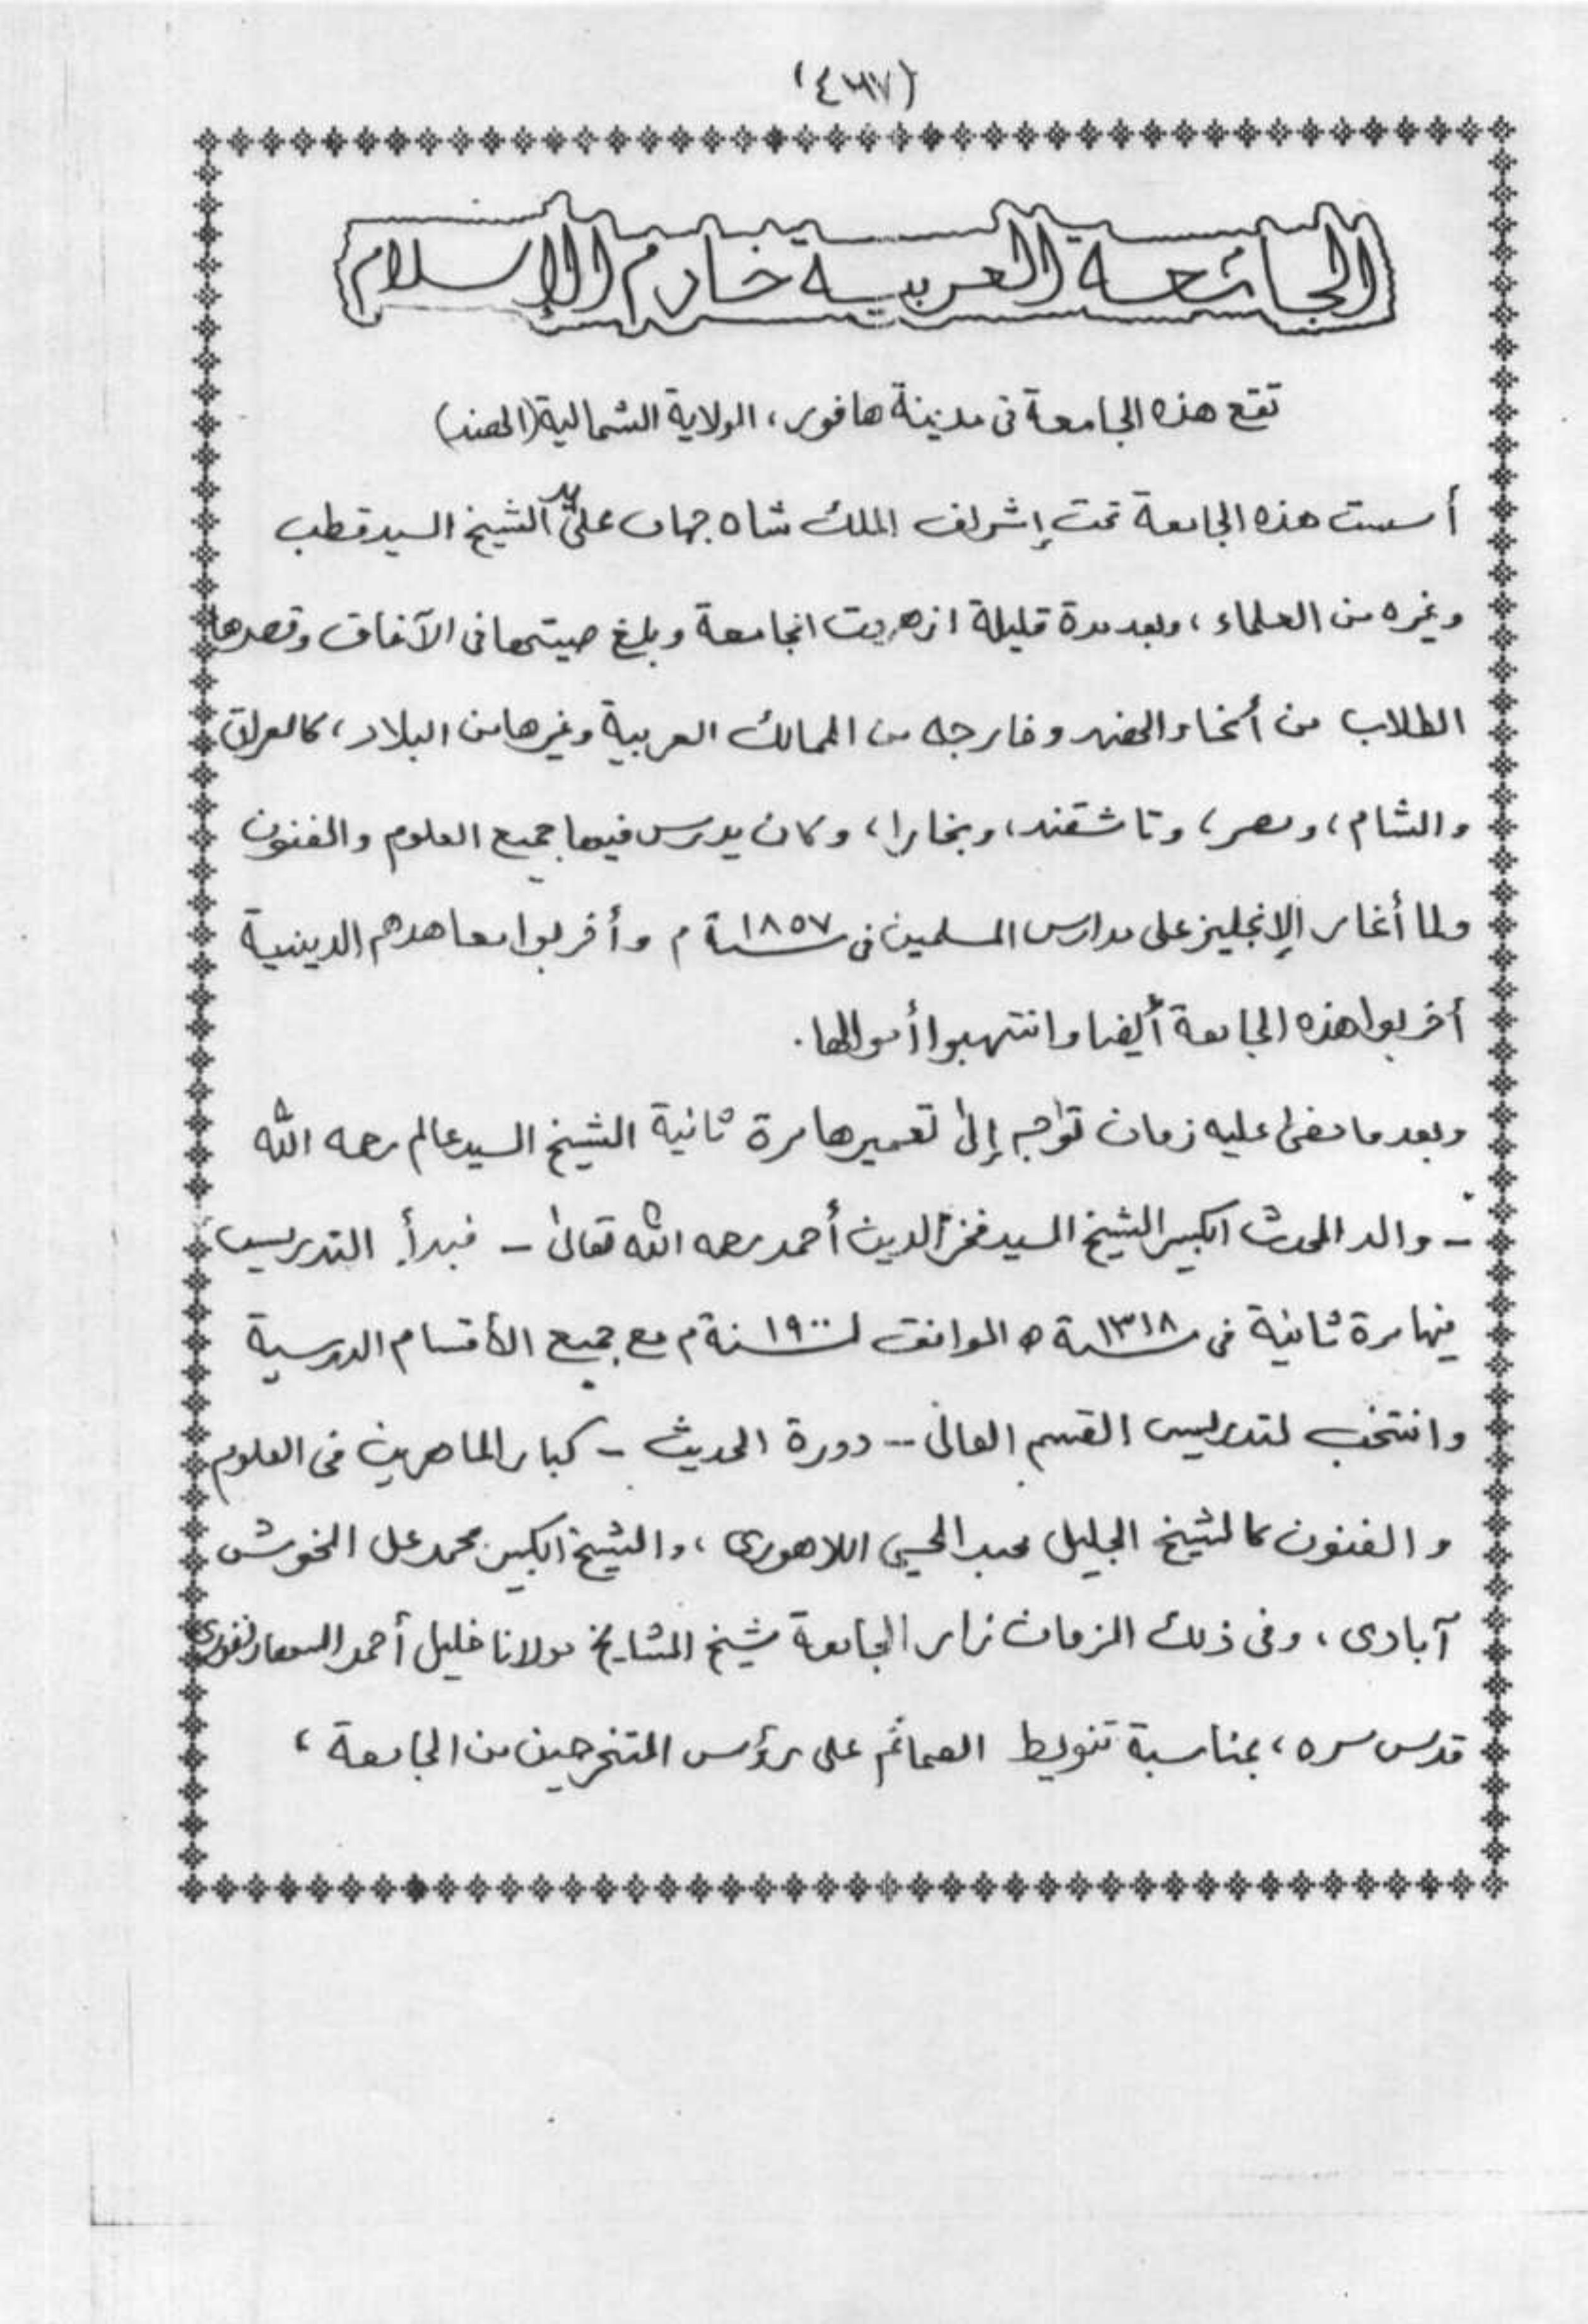 (٤٦٧)
الجامعة العربية خادم الإسلام
تقع هذه الجامعة فى مدينة هافور، الولاية الشمالية (الهند)
أسست هذه الجامعة تحت إشراف الملك شاه جهان على يد الشيخ السيد قطب
وغيره من العلماء، وبعد مدة قليلة ازهرت الجامعة وبلغ صيتها فى الآفاق وقصدها
الطلاب من أنحاء الهند وخارجه من الممالك العربية وغيرها من البلاد، كالعراق
والشام، ومصر، وتاشقند، وبخارا، وكان يدرس فيها جميع العلوم والفنون
ولما أغار الإنجليز على مدارس المسلمين فى سنة ١٨٥٧ م وأخربوا معاهدهم الدينية
أخربوا هذه الجامعة أيضا وانتهبوا أموالها.
وبعد ما مضى عليه زمان توجه إلى تعميرها مرة ثانية الشيخ السيد عالم رحمه الله
- والد المحدث الكبير الشيخ السيد فخر الدين أحمد رحمه الله تعالى - فبدأ التدريس
فيها مرة ثانية فى سنة ١٣١٨ ه الموافق لسنة ١٩٠٠ م مع جميع الأقسام الدرسية
وانتخب لتدريس القسم العالى -- دورة الحديث - كبار الماهرين فى العلوم
والفنون كالشيخ الجليل عبد الحيي اللاهورى، والشيخ الكبير محمد على الخوش
آبادى، وفى ذلك الزمان زار الجامعة شيخ المشايخ مولانا خليل أحمد السهارنفورى
قدس سره، بمناسبة تنويط العمائم على رؤس المتخرجين من الجامعة،